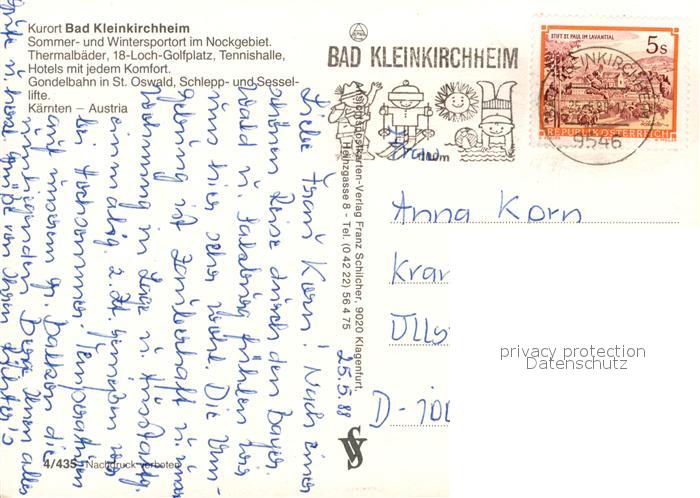 Kurort Bad Kleinkirchheim
Sommer- und Wintersportort im Nockgebiet.
Thermalbäder, 18-Loch-Golfplatz, Tennishalle,
Hotels mit jedem Komfort.
Gondelbahn in St. Oswald, Schlepp- und Sessel-
lifte.
Kärnten – Austria
BAD KLEINKIRCHHEIM
STIFT ST. PAUL IM LAVANTTAL
5 S
REPUBLIK ÖSTERREICH
9546
Frau
Anna Korn
Kran
Ulls
D-100
Ansichtspostkarten-Verlag Franz Schilcher, 9020 Klagenfurt,
Heinzgasse 8 – Tel. (0 42 22) 56 4 75
25.5.88
Liebe Frau Korn! Nach einer
schönen Reise durch den Bayer.
Wald u. Salzburg fühlen wir
uns hier sehr wohl. Die Um-
gebung ist zauberhaft u. unsere
Wohnung in Lage u. Ausstattg.
einmalig. Z. Zt. genießen wir
bei Hochsommer-Temperaturen
auf unserem gr. Balkon die
umliegenden Berge. Ihnen alles
Gute u. herzl. Grüße von Ihren
4/435 Nachdruck verboten
privacy protection
Datenschutz